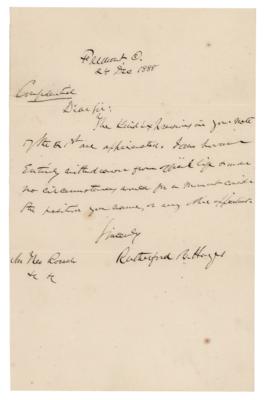 Fremont O.
24 Dec 1888
Confidential
Dear Sir:
The kind expressions in your note
of the 21st are appreciated. I am however
entirely withdrawn from official life & under
no circumstances would for a moment consider
the position you name, or any other appointment.
Sincerely
Rutherford B. Hayes